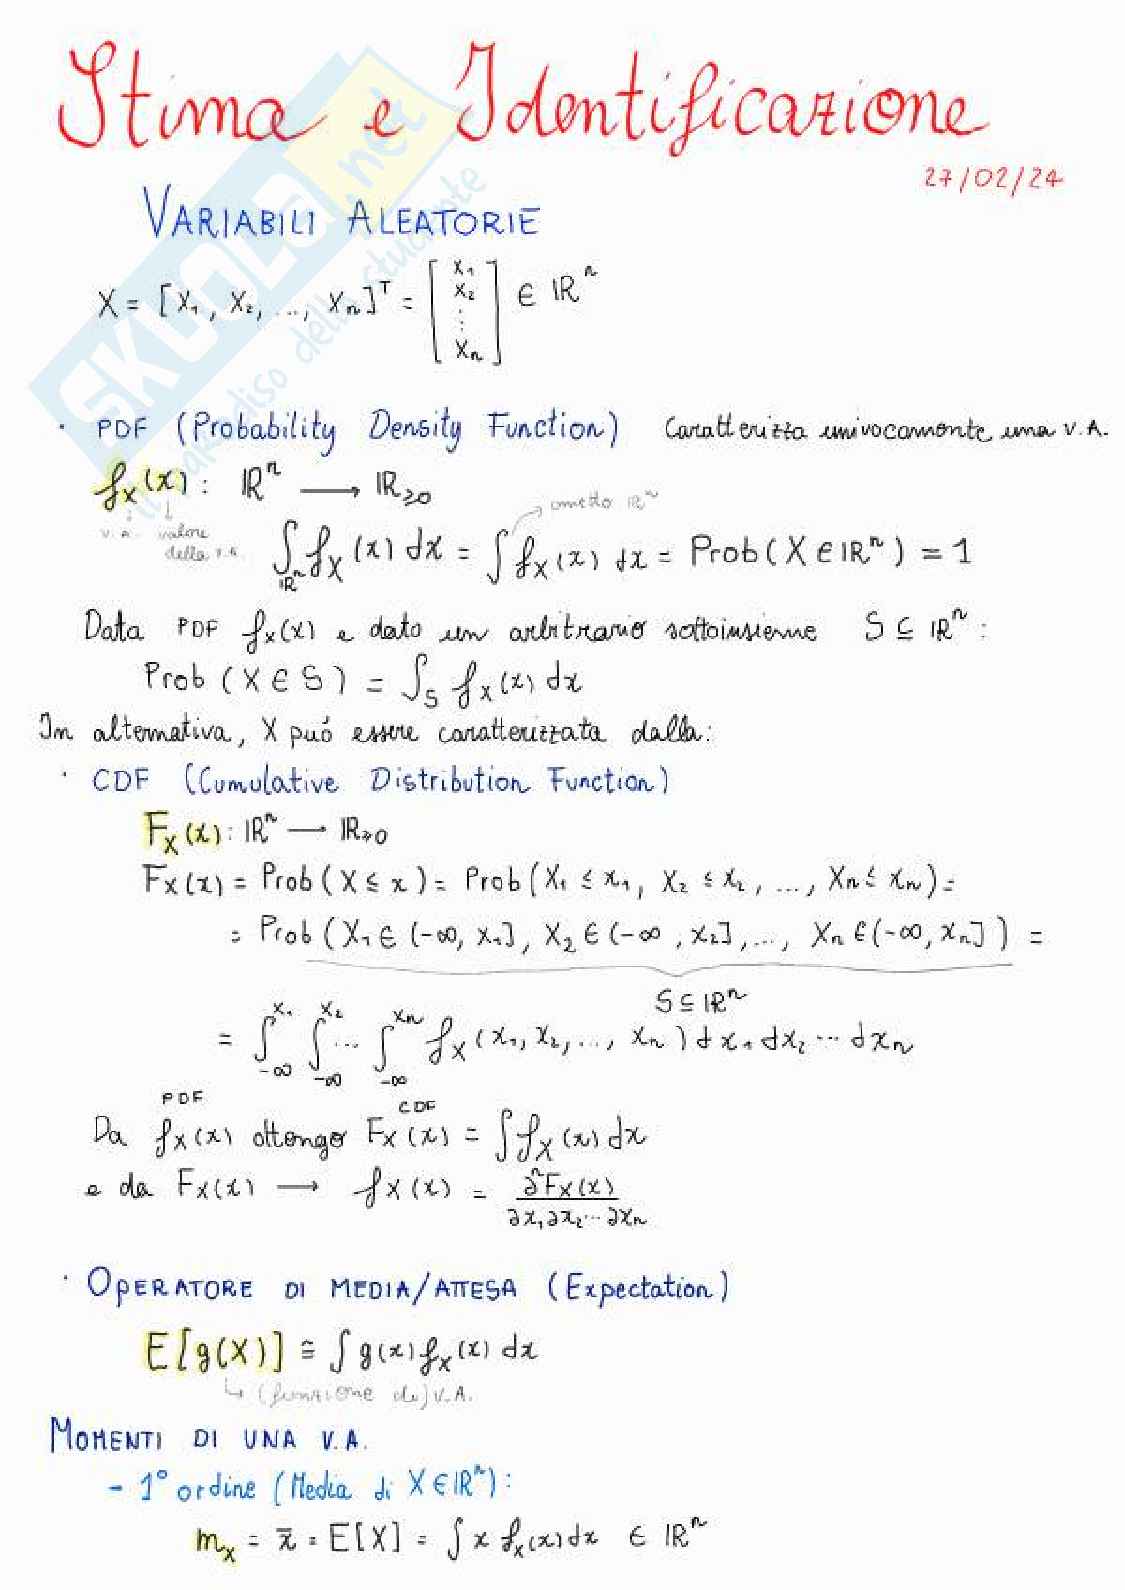 Stima e Identificazione
27/02/24
VARIABILI ALEATORIE
X = [X₁, X₂, ..., Xₙ]ᵀ = [X₁ X₂ ⋮ Xₙ] ∈ ℝⁿ
· PDF (Probability Density Function) Caratterizza univocamente una V.A.
f_X(x): ℝⁿ → ℝ≥0
V.A. valore della V.A.
ometto ℝⁿ
∫_ℝⁿ f_X(x) dx = ∫ f_X(x) dx = Prob(X ∈ ℝⁿ) = 1
Data PDF f_X(x) e dato un arbitrario sottoinsieme S ⊆ ℝⁿ:
Prob (X ∈ S) = ∫_S f_X(x) dx
In alternativa, X può essere caratterizzata dalla:
· CDF (Cumulative Distribution Function)
F_X(x): ℝⁿ → ℝ≥0
F_X(x) = Prob(X ≤ x) = Prob(X₁ ≤ x₁, X₂ ≤ x₂, ..., Xₙ ≤ xₙ) =
= Prob(X₁ ∈ (-∞, x₁], X₂ ∈ (-∞, x₂], ..., Xₙ ∈ (-∞, xₙ]) =
S ⊆ ℝⁿ
= ∫_{-∞}^{x₁} ∫_{-∞}^{x₂} ... ∫_{-∞}^{xₙ} f_X(x₁, x₂, ..., xₙ) dx₁ dx₂ ... dxₙ
PDF CDF
Da f_X(x) ottengo F_X(x) = ∫ f_X(x) dx
e da F_X(x) → f_X(x) = ∂ⁿF_X(x) / ∂x₁∂x₂...∂xₙ
· OPERATORE DI MEDIA/ATTESA (Expectation)
E[g(X)] ≅ ∫ g(x) f_X(x) dx
↳ (funzione di) V.A.
MOMENTI DI UNA V.A.
- 1° ordine (Media di X ∈ ℝⁿ):
m_X = x̄ = E[X] = ∫ x f_X(x) dx ∈ ℝⁿ
SKUOLA.net
il paradiso dello studente